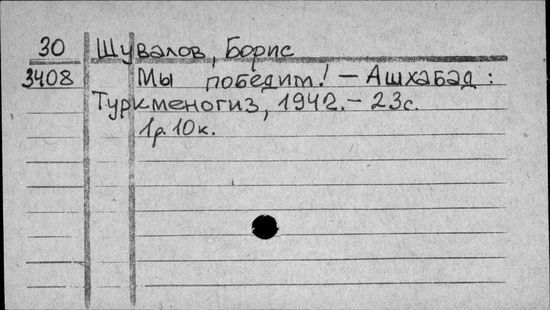 30 Шувалов, Борис
3408 Мы победим! — Ашхабад:
Туркменогиз, 1942. — 23с.
1р. 10к.